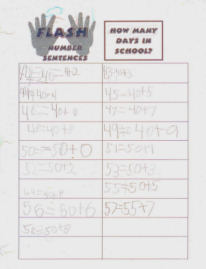 FLASH
NUMBER
SENTENCES
HOW MANY
DAYS IN
SCHOOL?
45=40+5
46=40+6
47=40+7
48=40+8
49=40+9
50=50+0
51=50+1
52=50+2
53=50+3
55=50+5
56=50+6
57=55+7
58=50+8